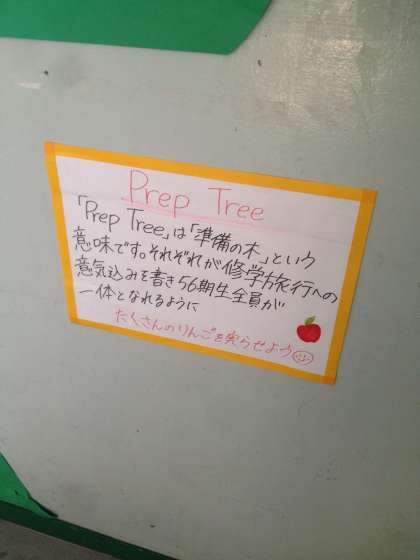 Prep Tree
「Prep Tree」は「準備の木」という
意味です。それぞれが修学旅行への
意気込みを書き56期生全員が
一体となれるように
たくさんのりんごを実らせよう